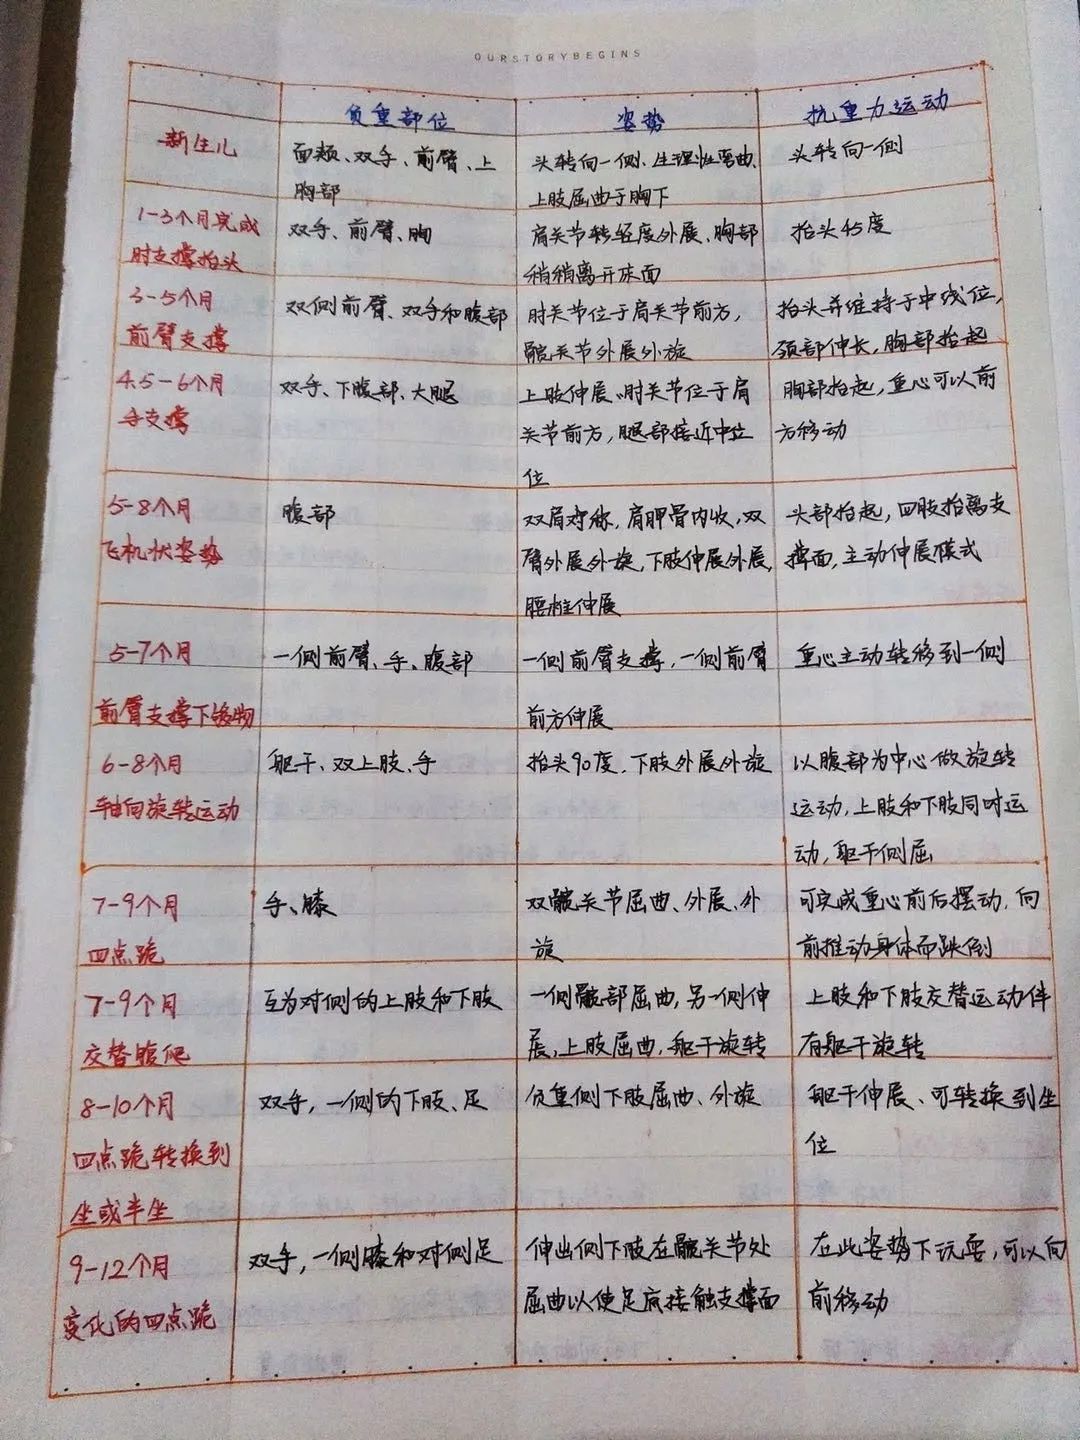 OURSTORYBEGINS
负重部位 姿势 抗重力运动
新生儿 面颊、双手、前臂、上 头转向一侧、生理性弯曲, 头转向一侧
胸部 上肢屈曲于胸下
1-3个月完成 双手、前臂、胸 肩关节转轻度外展、胸部 抬头45度
肘支撑抬头 稍稍离开床面
3-5个月 双侧前臂、双手和腹部 肘关节位于肩关节前方, 抬头并维持于中线位,
前臂支撑 髋关节外展外旋 颈部伸长,胸部抬起
4.5-6个月 双手、下腹部、大腿 上肢伸展、肘关节位于肩 胸部抬起,重心可以前
手支撑 关节前方,腿部接近中位 方移动
位
5-8个月 腹部 双肩对称,肩胛骨内收,双 头部抬起,四肢抬离支
飞机状姿势 臂外展外旋,下肢伸展外展, 撑面,主动伸展模式
腰椎伸展
5-7个月 一侧前臂、手、腹部 一侧前臂支撑,一侧前臂 重心主动转移到一侧
前臂支撑下够物 前方伸展
6-8个月 躯干、双上肢、手 抬头90度,下肢外展外旋 以腹部为中心做旋转
轴向旋转运动 运动,上肢和下肢同时运
动,躯干侧屈
7-9个月 手、膝 双髋关节屈曲、外展、外 可完成重心前后摆动,向
四点跪 旋 前推动身体而跌倒
7-9个月 互为对侧的上肢和下肢 一侧髋部屈曲,另一侧伸 上肢和下肢交替运动伴
交替腹爬 展,上肢屈曲,躯干旋转 有躯干旋转
8-10个月 双手,一侧的下肢、足 负重侧下肢屈曲、外旋 躯干伸展、可转换到坐
四点跪转换到 位
坐或半坐
9-12个月 双手,一侧膝和对侧足 伸出侧下肢在髋关节处 在此姿势下玩耍,可以向
变化的四点跪 屈曲以使足底接触支撑面 前移动